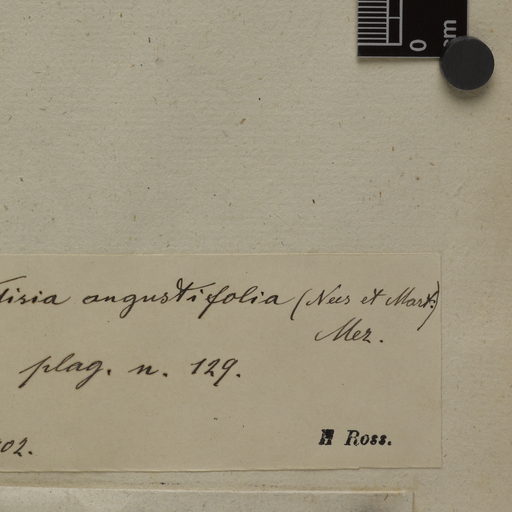 0
cm
tisia angustifolia (Nees et Mart.)
Mez.
plag. n. 129.
02.
H Ross.